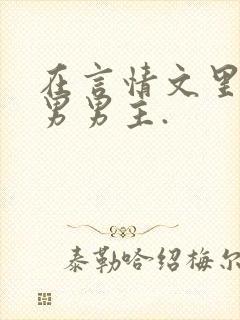 在言情文里
男男主.
泰勒哈绍梅尔